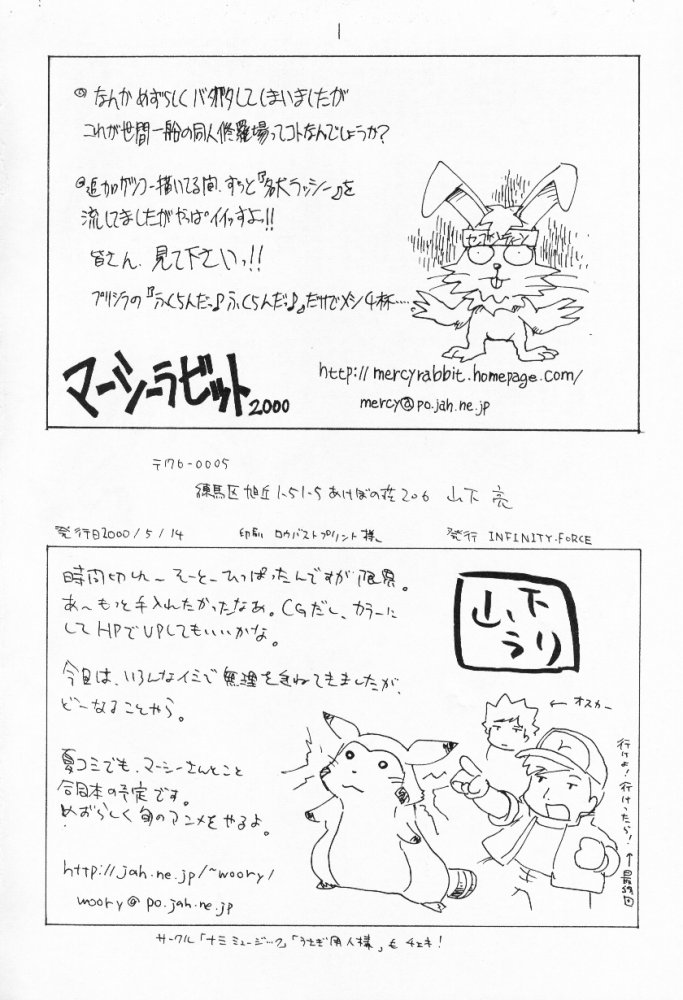 1
◎なんかめずらしくバタバタしてしまいましたが
これが世間一般の同人修羅場ってコトなんでしょうか?
◎追加ゲンコー描いてる間、ずっと『名犬ラッシー』を
流してましたがやっぱイイっすよっ!!
皆さん、見て下さいっ!!
プリシラの『ふくらんだっ♪ふくらんだっ♪』だけでメシ4杯……
セブンティーン
マーシーラビット2000
http://mercyrabbit.homepage.com/
mercy@po.jah.ne.jp
〒176-0005
練馬区旭丘1-51-5あけぼの荘206 山下 亮
発行日2000/5/14 印刷 ロウバストプリント様 発行 INFINITY-FORCE
時間切れ〜そーとーひっぱったんですが限界。
あ〜もっと手入れたかったなあ。CGだし、カラーに
してHPでUPしてもいいかな。
今回は、いろんなイミで無理を重ねてきましたが、
どーなることやら。
夏コミでも、マーシーさんとこと
合同本の予定です。
めずらしく旬のアニメをやるよ。
http://jah.ne.jp/~woory/
woory@po.jah.ne.jp
山下
うり
←オスカー
行けよ!行けったら!
↑最終回
サークル「ナミミュージック」「うさぎ同人様」も